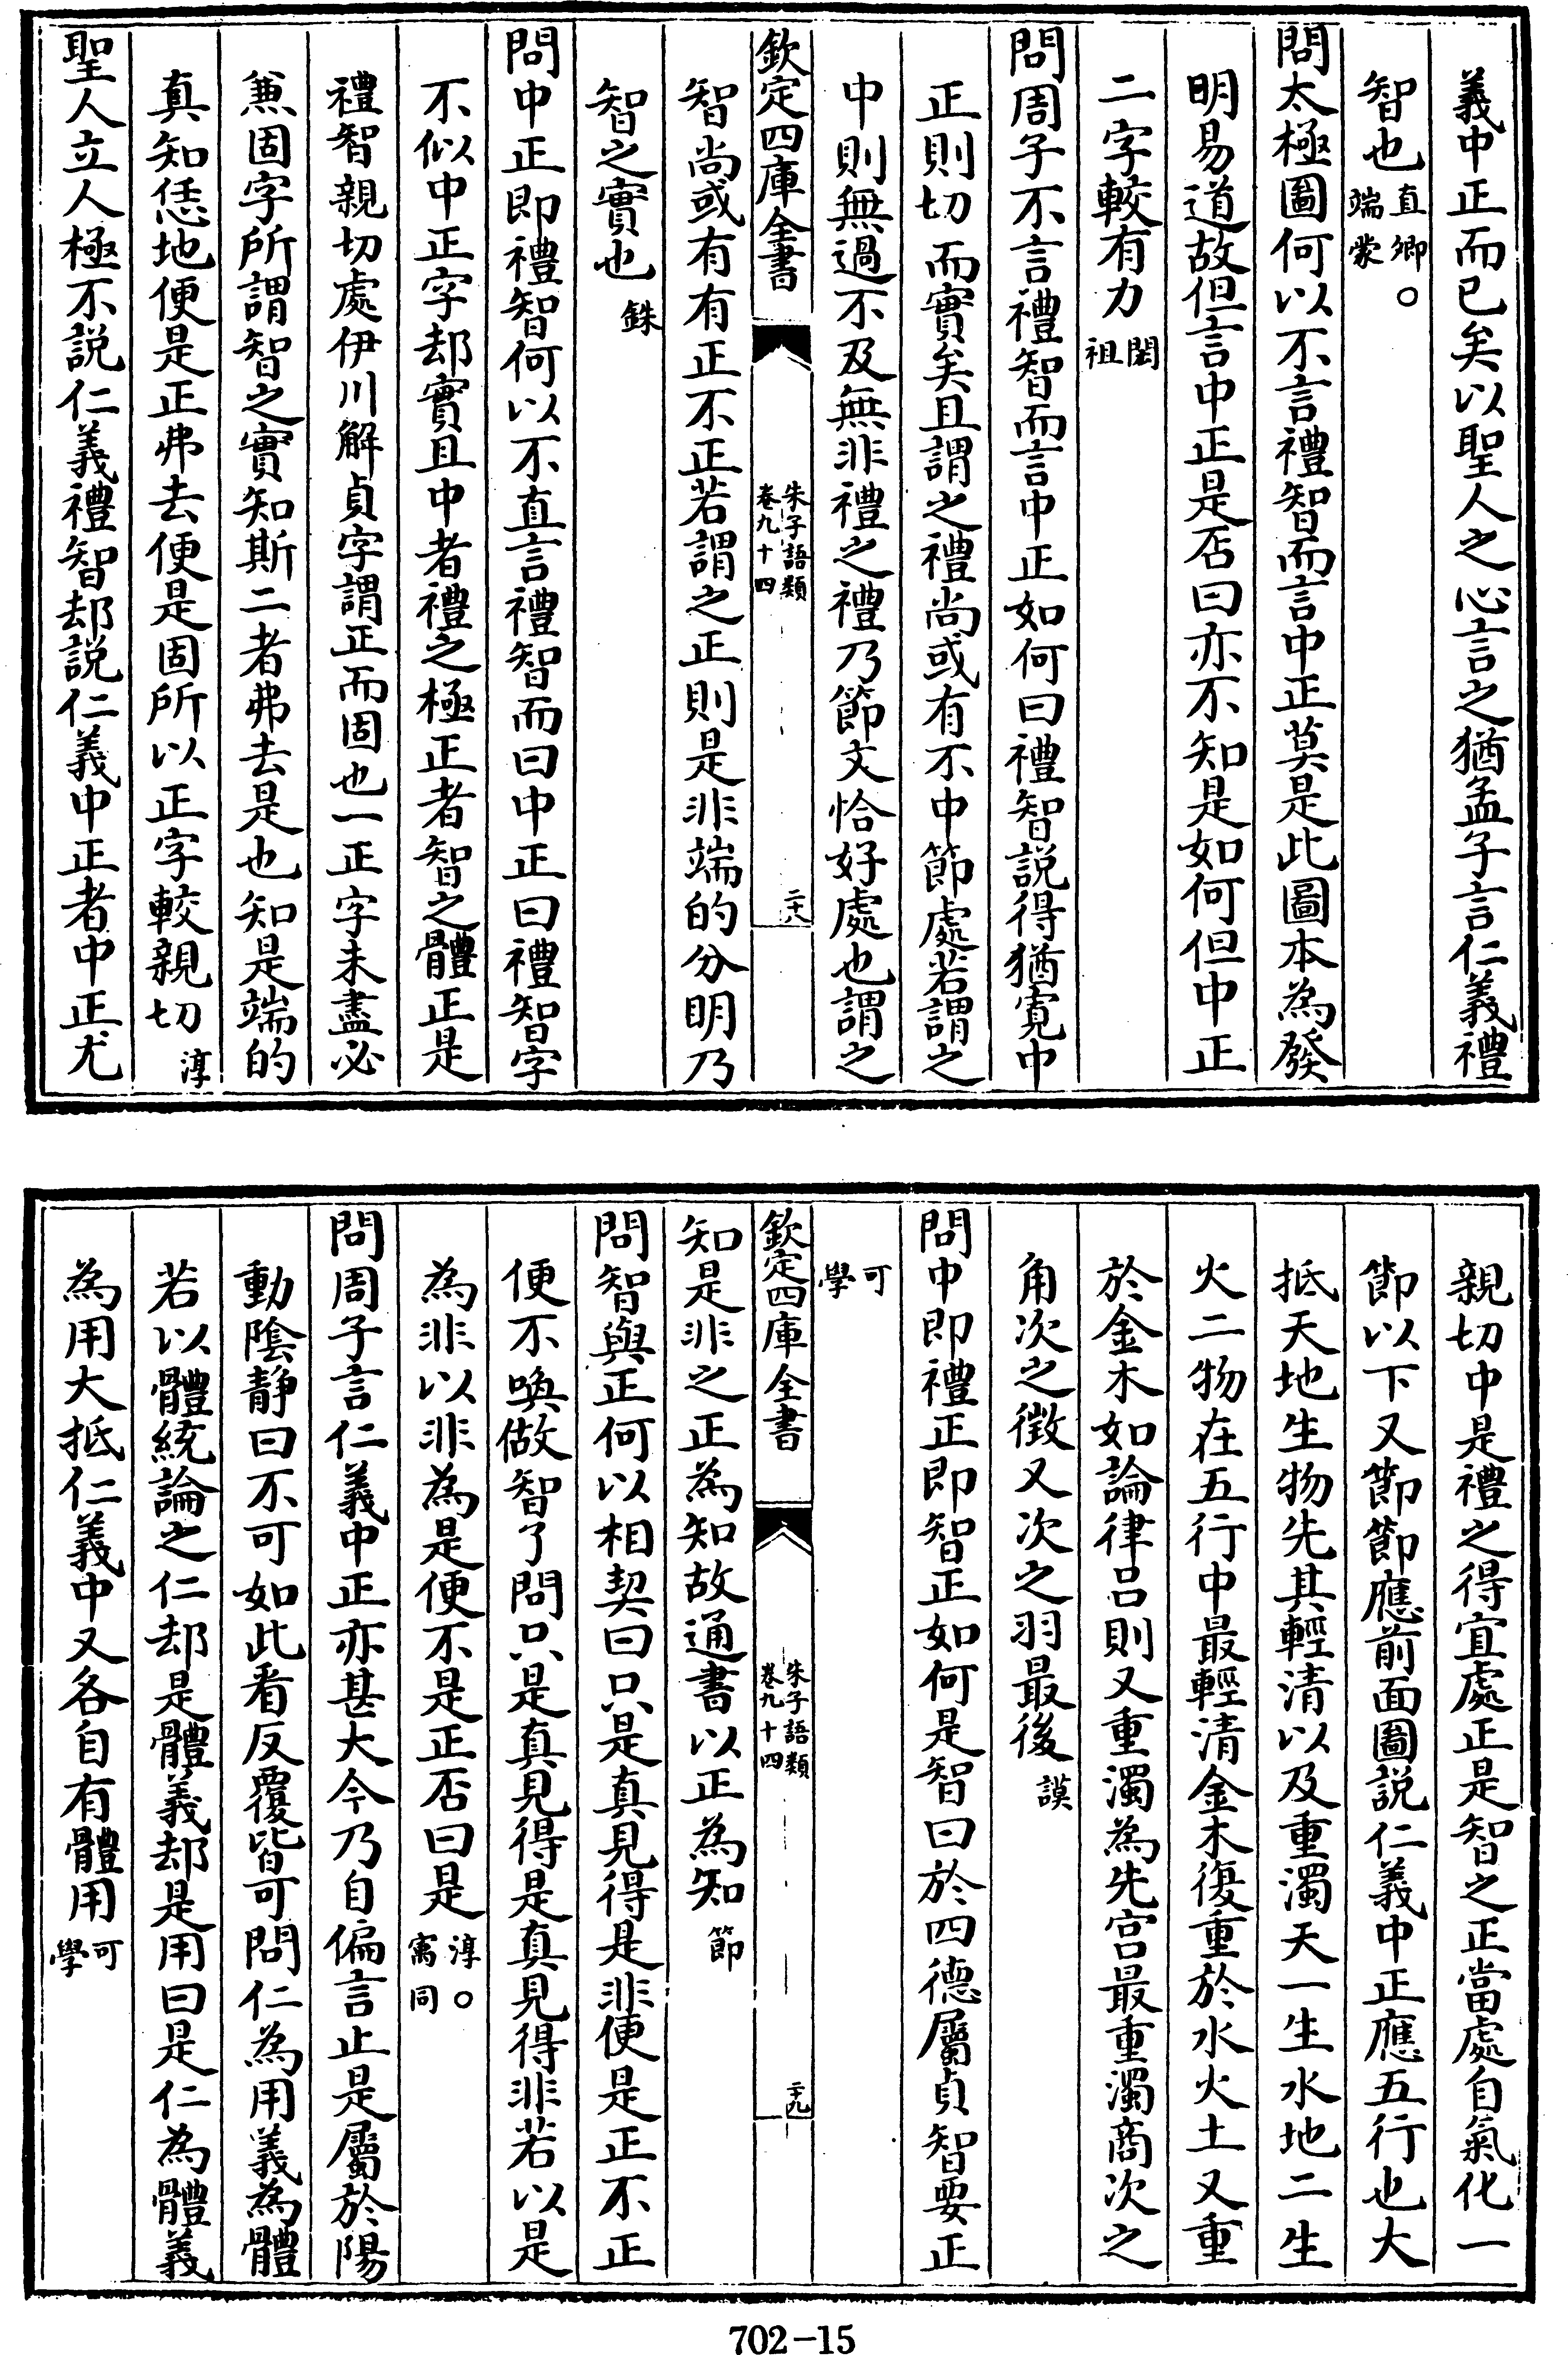 義中正而已矣以聖人之心言之猶孟子言仁義禮
智也直卿○端蒙
問太極圖何以不言禮智而言中正莫是此圖本為發
明易道故但言中正是否曰亦不知是如何但中正
二字較有力閎祖
問周子不言禮智而言中正如何曰禮智説得猶寛中
正則切而實矣且謂之禮尚或有不中節處若謂之
中則無過不及無非禮之禮乃節文恰好處也謂之
欽定四庫全書
朱子語類
卷九十四
二十八
智尚或有有正不正若謂之正則是非端的分明乃
智之實也銖
問中正即禮智何以不直言禮智而曰中正曰禮智字
不似中正字却實且中者禮之極正者智之體正是
禮智親切處伊川解貞字謂正而固也一正字未盡必
兼固字所謂智之實知斯二者弗去是也知是端的
真知恁地便是正弗去便是固所以正字較親切淳
聖人立人極不説仁義禮智却説仁義中正者中正尤
親切中是禮之得宜處正是智之正當處自氣化一
節以下又節節應前面圖説仁義中正應五行也大
抵天地生物先其輕清以及重濁天一生水地二生
火二物在五行中最輕清金木復重於水火土又重
於金木如論律吕則又重濁為先宫最重濁商次之
角次之徴又次之羽最後謨
問中即禮正即智正如何是智曰於四德屬貞智要正
可學
欽定四庫全書
朱子語類
卷九十四
二十九
知是非之正為知故通書以正為知節
問智與正何以相契曰只是真見得是非便是正不正
便不喚做智了問只是真見得是真見得非若以是
為非以非為是便不是正否曰是淳○㝢同
問周子言仁義中正亦甚大今乃自偏言止是屬於陽
動陰静曰不可如此看反覆皆可問仁為用義為體
若以體統論之仁却是體義却是用曰是仁為體義
為用大抵仁義中又各自有體用可學
702-15